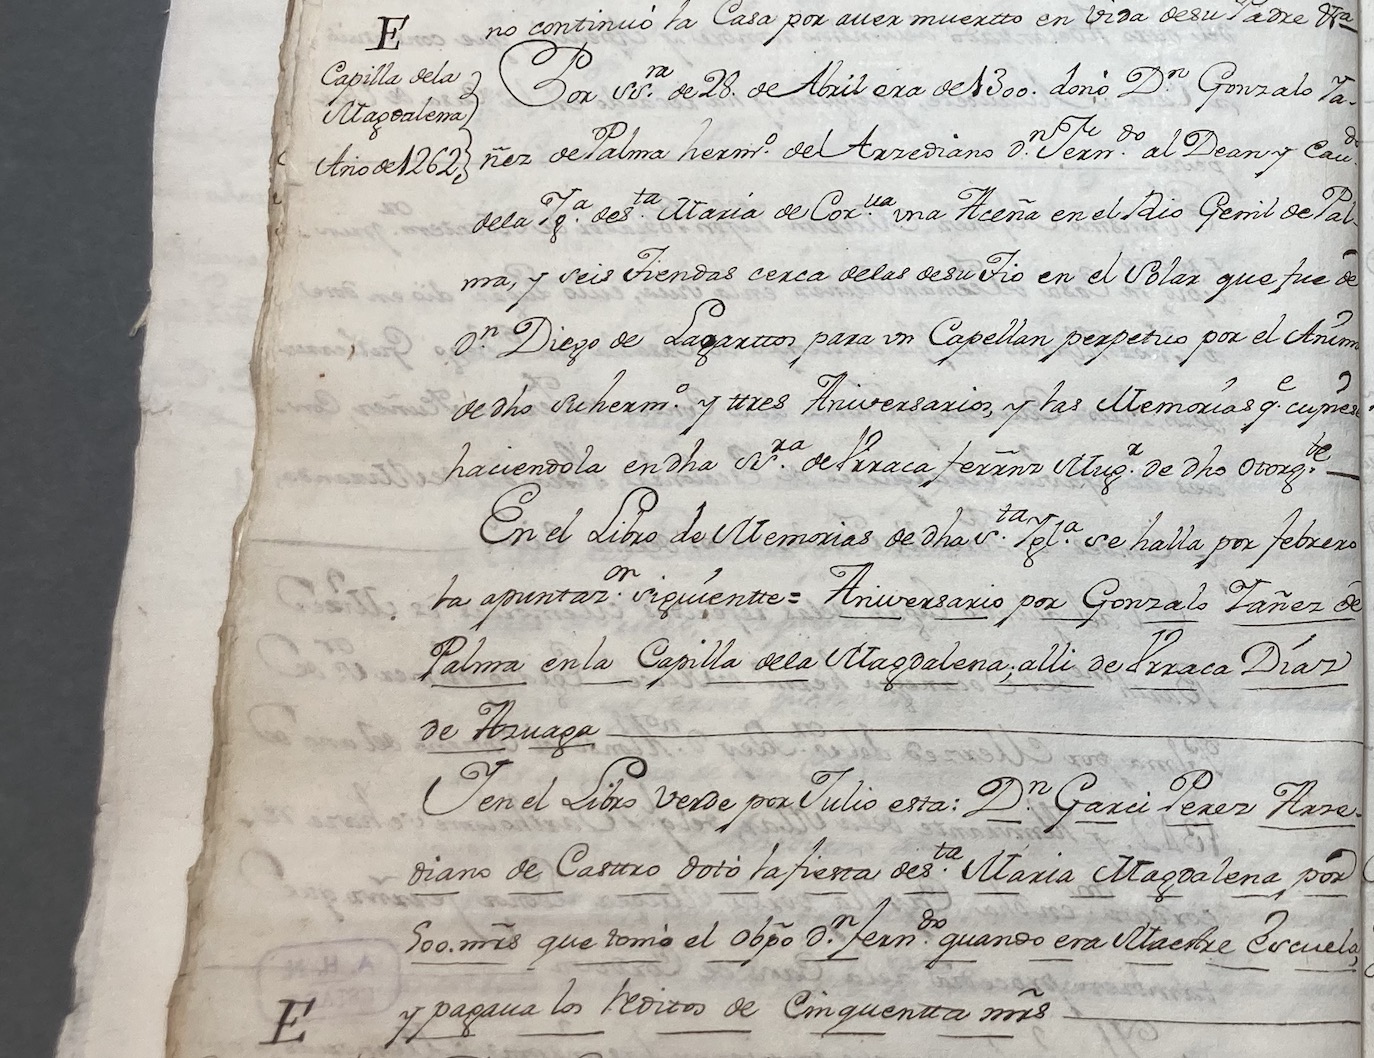 no continuó la Casa por aver muertto en vida de su Padre
E
Capilla de la
Magdalena
Año de 1262
Por ss.ra de 28. de Abril era de 1300. donó D.n Gonzalo Ya-
ñez de Palma herm.o del Arzediano d.n Fern.do al Dean y Cav.do
de la Yg.a de s.ta Maria de Cor.va vna Aceña en el Rio Genil de Pal-
ma, y seis Tiendas cerca de las de su Tio en el Solar que fue de
d.n Diego de Lagarttos para vn Capellan perpetuo por el Anim
de dho su herm.o y ttres Aniversarios, y las Memorias q.e
haciendola en dha de Vrraca ferrnz Mug.r de dho otorg.te
En el Libro de Memorias de dha s.ta Ygl.a se halla por febrero
la apuntaz.on siguientte = Aniversario por Gonzalo Yañez de
Palma en la Capilla de la Magdalena; alli de Vrraca Díaz
de Azuaga
Y en el Libro Verde por Julio esta: D.n Garci Perez Arze-
diano de Casttro dotó la fiesta de s.ta Maria Magdalena por
500. mrs que tomó el obpo d.n fern.do quando era Maestre Escuela,
E
y pagava los reditos de Cinquentta mrs
A. H. N.